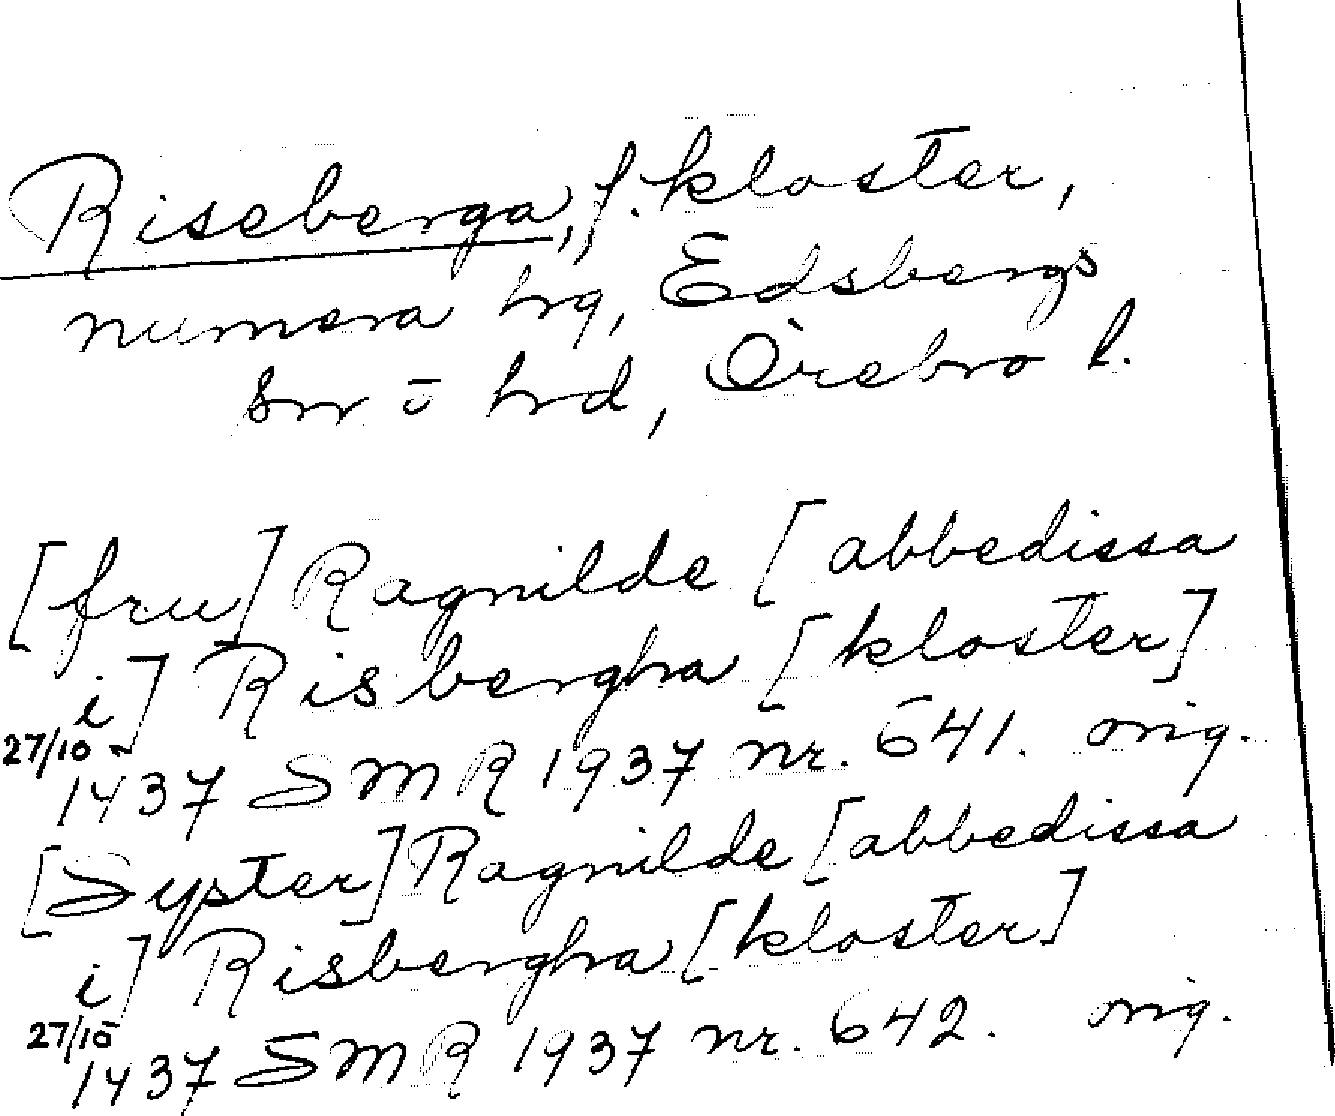 Riseberga, f. kloster,
numera hrg, Edsbergs
sn o hrd, Örebro l.
[fru] Ragnilde [abbedissa
i] Risbergha [kloster]
27/10
1437 SMR 1937 nr. 641. orig.
[Syster] Ragnilde [abbedissa
i] Risbergha [kloster]
27/10
1437 SMR 1937 nr. 642. orig.